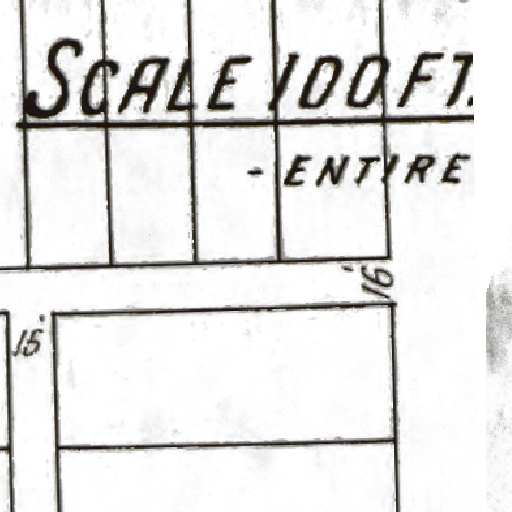 SCALE 100 FT.
- ENTIRE
16'
15'